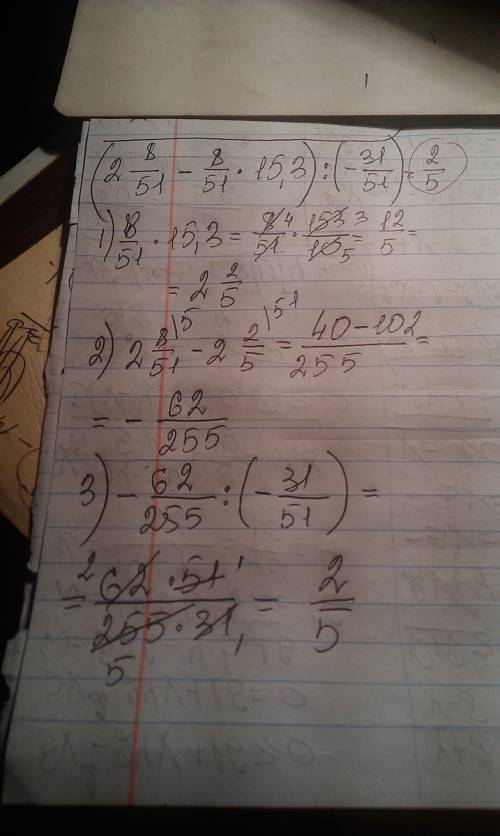 (2 8/51 - 8/51 · 15,3) : (-31/51) = 2/5
1) 8/51 · 15,3 = 8 4/51 · 153 3/10 5 = 12/5 =
= 2 2/5
2) 2 8/51 \5 - 2 2/5 \51 = 40-102/255 =
= - 62/255
3) - 62/255 : (-31/51) =
= 2 62 · 51 1/255 5 · 31 1 = 2/5